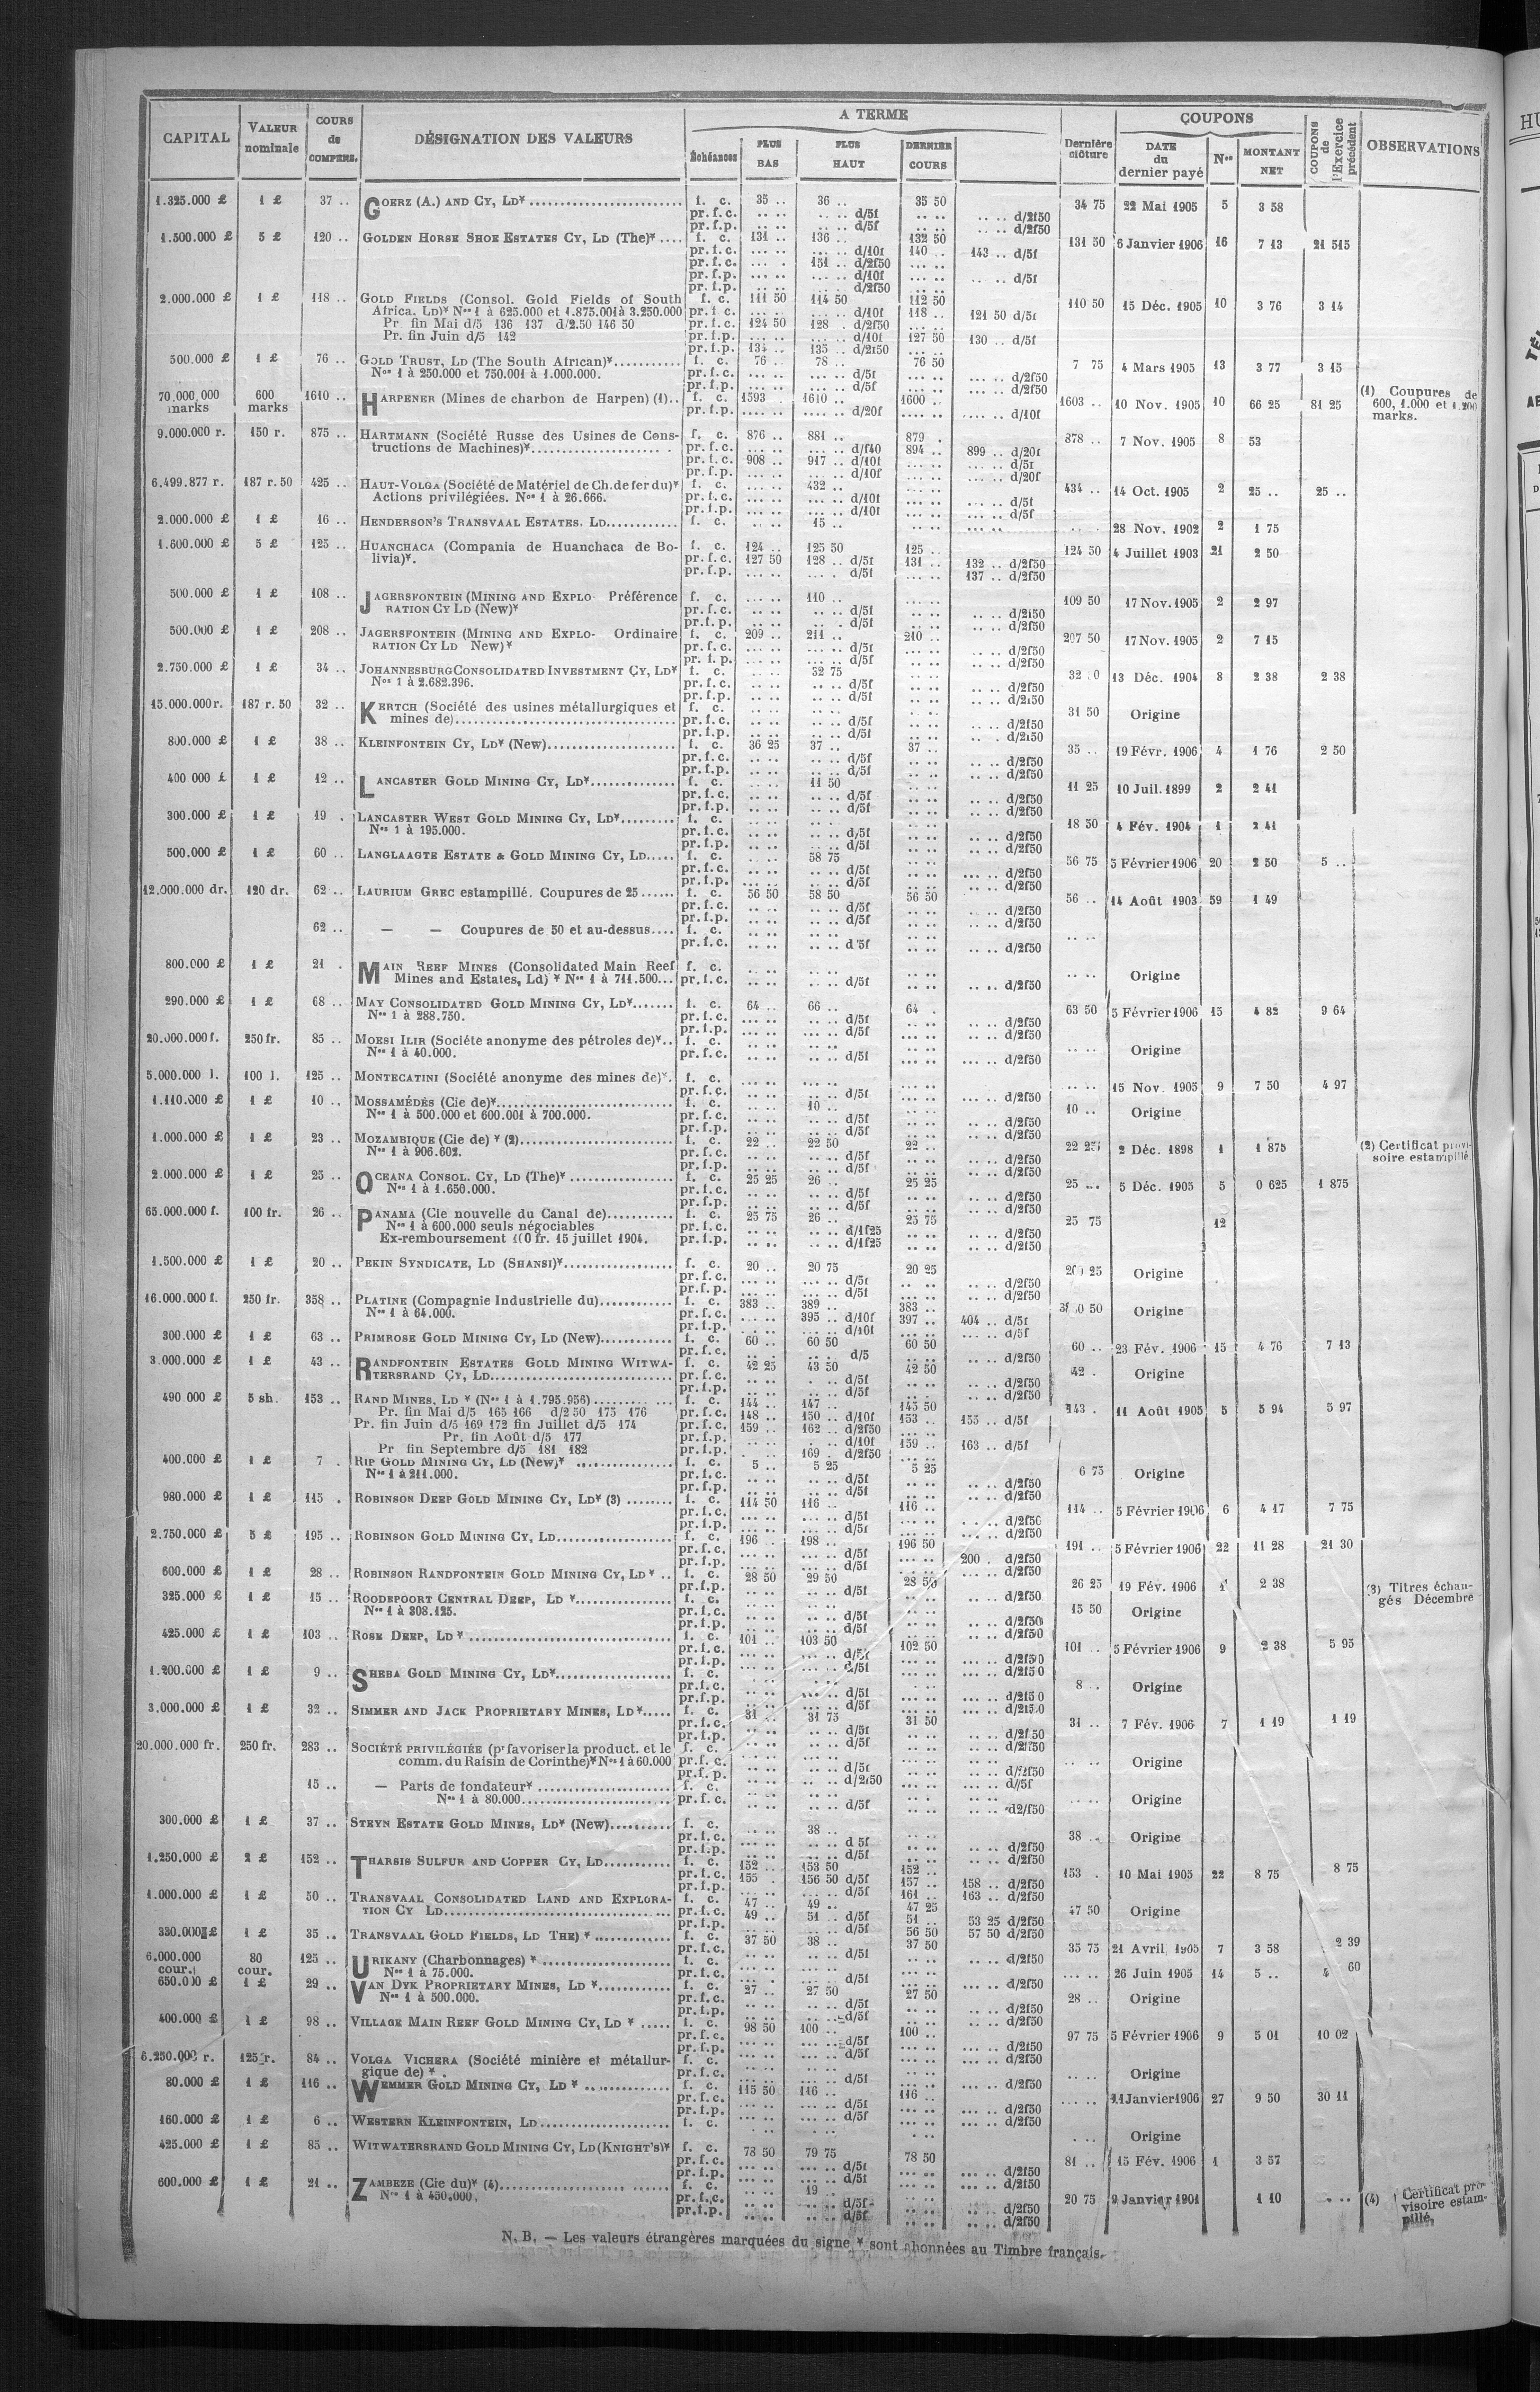 CAPITAL | VALEUR nominale | COURS de COMPENS. | DÉSIGNATION DES VALEURS | A TERME | Dernière clôture | COUPONS | COUPONS de l'Exercice précédent | OBSERVATIONS
Échéances | PLUS BAS | PLUS HAUT | DERNIER COURS | DATE du dernier payé | Nos | MONTANT NET
1.325.000 £ 1 £ 37 .. GOERZ (A.) AND CY, LD* f. c. 35 .. 36 .. 35 50 34 75 22 Mai 1905 5 3 58
pr. f. c. .. .. .. .. d/5f .. .. d/2f50
pr. f. p. .. .. .. .. d/5f .. .. d/2f50
1.500.000 £ 5 £ 120 .. GOLDEN HORSE SHOE ESTATES CY, LD (The)* f. c. 131 .. 136 .. 132 50 131 50 6 Janvier 1906 16 7 13 21 515
pr. f. c. d/10f 140 .. 143 .. d/5f
pr. f. c. 151 .. d/2f50
pr. f. p. d/10f d/5f
pr. f. p. d/2f50
2.000.000 £ 1 £ 118 .. GOLD FIELDS (Consol. Gold Fields of South f. c. 111 50 114 50 112 50 110 50 15 Déc. 1905 10 3 76 3 14
Africa. LD)* Nos 1 à 625.000 et 1.875.001 à 3.250.000 pr. f. c. d/10f 118 .. 121 50 d/5f
Pr. fin Mai d/5 136 137 d/2.50 146 50 pr. f. c. 124 50 128 . d/2f50
Pr. fin Juin d/5 142 pr. f. p. d/10f 127 50 130 .. d/5f
pr. f. p. 134 .. 135 .. d/2f50
500.000 £ 1 £ 76 .. GOLD TRUST, LD (The South African)* f. c. 76 .. 78 .. 76 50 7 75 4 Mars 1905 13 3 77 3 15
Nos 1 à 250.000 et 750.001 à 1.000.000. pr. f. c. d/5f d/2f50
pr. f. p. d/5f d/2f50
70.000.000 marks 600 marks 1610 .. HARPENER (Mines de charbon de Harpen) (1).. f. c. 1593 1610 .. 1600 .. 1603 .. 10 Nov. 1905 10 66 25 81 25 (1) Coupures de 600, 1.000 et 1.200 marks.
pr. f. p. d/20f d/10f
9.000.000 r. 150 r. 875 .. HARTMANN (Société Russe des Usines de Cons- f. c. 876 .. 881 .. 879 . 878 .. 7 Nov. 1905 8 53
tructions de Machines)* pr. f. c. d/f40 894 .. 899 .. d/20f
pr. f. c. 908 .. 917 .. d/10f d/5f
pr. f. p. d/10f d/20f
6.499.877 r. 187 r. 50 425 .. HAUT-VOLGA (Société de Matériel de Ch. de fer du)* f. c. 432 .. 434 .. 14 Oct. 1905 2 25 .. 25 ..
Actions privilégiées. Nos 1 à 26.666. pr. f. c. d/10f d/5f
pr. f. p. d/10f d/5f
2.000.000 £ 1 £ 16 .. HENDERSON'S TRANSVAAL ESTATES. LD f. c. 15 .. 28 Nov. 1902 2 1 75
1.600.000 £ 5 £ 125 .. HUANCHACA (Compania de Huanchaca de Bo- f. c. 124 .. 125 50 125 .. 124 50 4 Juillet 1903 21 2 50
livia)*. pr. f. c. 127 50 128 .. d/5f 131 .. 132 .. d/2f50
pr. f. p. d/5f 137 .. d/2f50
500.000 £ 1 £ 108 .. JAGERSFONTEIN (MINING AND EXPLO- Préférence f. c. 110 .. 109 50 17 Nov. 1905 2 2 97
RATION CY LD (New)* pr. f. c. d/5f d/2f50
pr. f. p. d/5f d/2f50
500.000 £ 1 £ 208 .. JAGERSFONTEIN (MINING AND EXPLO- Ordinaire f. c. 209 .. 211 .. 210 .. 207 50 17 Nov. 1905 2 7 15
RATION CY LD New)* pr. f. c. d/5f d/2f50
pr. f. p. d/5f d/2f50
2.750.000 £ 1 £ 34 .. JOHANNESBURG CONSOLIDATED INVESTMENT CY, LD* f. c. 32 75 13 Déc. 1904 8 2 38 2 38
Nos 1 à 2.682.396. pr. f. c. d/5f d/2f50
pr. f. p. d/5f d/2f50
15.000.000 r. 187 r. 50 32 .. KERTCH (Société des usines métallurgiques et f. c. 31 50 Origine
mines de) pr. f. c. d/5f d/2f50
pr. f. p. d/5f d/2f50
800.000 £ 1 £ 38 .. KLEINFONTEIN CY, LD* (New) f. c. 36 25 37 .. 37 .. 35 .. 19 Févr. 1906 4 1 76 2 50
pr. f. c. d/5f d/2f50
pr. f. p. d/5f d/2f50
400 000 £ 1 £ 12 .. LANCASTER GOLD MINING CY, LD* f. c. 11 50 11 25 10 Juil. 1899 2 2 41
pr. f. c. d/5f d/2f50
pr. f. p. d/5f d/2f50
300.000 £ 1 £ 19 . LANCASTER WEST GOLD MINING CY, LD* f. c. 18 50 4 Fév. 1904 1 2 41
Nos 1 à 195.000. pr. f. c. d/5f d/2f50
pr. f. p. d/5f d/2f50
500.000 £ 1 £ 60 .. LANGLAAGTE ESTATE & GOLD MINING CY, LD f. c. 58 75 56 75 5 Février 1906 20 2 50 5 ..
pr. f. c. d/5f d/2f50
pr. f. p. d/5f d/2f50
12.000.000 dr. 120 dr. 62 .. LAURIUM GREC estampillé. Coupures de 25 f. c. 56 50 58 50 56 50 56 .. 14 Août 1903 59 1 49
pr. f. c. d/5f d/2f50
pr. f. p. d/5f d/2f50
62 .. — — Coupures de 50 et au-dessus f. c.
pr. f. c. d/5f d/2f50
800.000 £ 1 £ 21 . MAIN REEF MINES (Consolidated Main Reef f. c. Origine
Mines and Estates, Ld) * Nos 1 à 711.500 pr. f. c. d/5f d/2f50
290.000 £ 1 £ 68 .. MAY CONSOLIDATED GOLD MINING CY, LD* f. c. 64 .. 66 .. 64 . 63 50 5 Février 1906 15 4 82 9 64
Nos 1 à 288.750. pr. f. c. d/5f d/2f50
pr. f. p. d/5f d/2f50
20.000.000 f. 250 fr. 85 .. MOESI ILIR (Société anonyme des pétroles de)* f. c. Origine
Nos 1 à 40.000. pr. f. c. d/5f d/2f50
5.000.000 l. 100 l. 125 .. MONTECATINI (Société anonyme des mines de)*. f. c. 15 Nov. 1905 9 7 50 4 97
pr. f. c. d/5f d/2f50
1.110.000 £ 1 £ 10 .. MOSSAMÉDÈS (Cie de)* f. c. 10 .. 10 .. Origine
Nos 1 à 500.000 et 600.001 à 700.000. pr. f. c. d/5f d/2f50
pr. f. p. d/5f d/2f50
1.000.000 £ 1 £ 23 .. MOZAMBIQUE (Cie de) * (2) f. c. 22 .. 22 50 22 .. 22 25 2 Déc. 1898 1 1 875 (2) Certificat provi-soire estampillé
Nos 1 à 906.602. pr. f. c. d/5f d/2f50
pr. f. p. d/5f d/2f50
2.000.000 £ 1 £ 25 .. OCEANA CONSOL. CY, LD (The)* f. c. 25 25 26 .. 25 25 25 ... 5 Déc. 1905 5 0 625 1 875
Nos 1 à 1.650.000. pr. f. c. d/5f d/2f50
pr. f. p. d/5f d/2f50
65.000.000 f. 100 fr. 26 .. PANAMA (Cie nouvelle du Canal de) f. c. 25 75 26 .. 25 75 25 75 12
Nos 1 à 600.000 seuls négociables pr. f. c. d/1f25 d/2f50
Ex-remboursement 100 fr. 15 juillet 1904. pr. f. p. d/1f25 d/2f50
1.500.000 £ 1 £ 20 .. PEKIN SYNDICATE, LD (SHANSI)* f. c. 20 .. 20 75 20 25 20 25 Origine
pr. f. c. d/5f d/2f50
pr. f. p. d/5f d/2f50
16.000.000 f. 250 fr. 358 .. PLATINE (Compagnie Industrielle du) f. c. 383 .. 389 .. 383 .. 380 50 Origine
Nos 1 à 64.000. pr. f. c. 395 .. d/10f 397 .. 404 .. d/5f
pr. f. p. d/10f d/5f
300.000 £ 1 £ 63 .. PRIMROSE GOLD MINING CY, LD (New) f. c. 60 .. 60 50 60 50 60 .. 23 Fév. 1906 15 4 76 7 13
pr. f. c. d/5 d/2f50
3.000.000 £ 1 £ 43 .. RANDFONTEIN ESTATES GOLD MINING WITWA- f. c. 42 25 43 50 42 50 42 . Origine
TERSRAND CY, LD pr. f. c. d/5f d/2f50
pr. f. p. d/5f d/2f50
490 000 £ 5 sh. 153 .. RAND MINES, LD * (Nos 1 à 1.795.956) f. c. 144 .. 147 .. 145 50 143 . 11 Août 1905 5 5 94 5 97
Pr. fin Mai d/5 165 166 d/2 50 175 176 pr. f. c. 148 .. 150 .. d/10f 153 .. 155 .. d/5f
Pr. fin Juin d/5 169 172 fin Juillet d/5 174 pr. f. c. 159 .. 162 .. d/2f50
Pr. fin Août d/5 177 pr. f. p. d/10f 159 .. 163 .. d/5f
Pr fin Septembre d/5 181 182 pr. f. p. 169 . d/2f50
400.000 £ 1 £ 7 . RIP GOLD MINING CY, LD (New)* f. c. 5 .. 5 25 5 25 6 75 Origine
Nos 1 à 211.000. pr. f. c. d/5f d/2f50
pr. f. p. d/5f d/2f50
980.000 £ 1 £ 115 . ROBINSON DEEP GOLD MINING CY, LD* (3) f. c. 114 50 116 .. 116 .. 114 .. 5 Février 1906 6 4 17 7 75
pr. f. c. d/5f d/2f50
pr. f. p. d/5f d/2f50
2.750.000 £ 5 £ 195 .. ROBINSON GOLD MINING CY, LD f. c. 196 .. 198 .. 196 50 191 .. 5 Février 1906 22 11 28 21 30
pr. f. c. d/5f 200 . d/2f50
pr. f. p. d/5f d/2f50
600.000 £ 1 £ 28 .. ROBINSON RANDFONTEIN GOLD MINING CY, LD * f. c. 28 50 29 50 28 50 26 25 19 Fév. 1906 1 2 38 (3) Titres échan-gés Décembre
pr. f. p. d/5f d/2f50
325.000 £ 1 £ 15 .. ROODEPOORT CENTRAL DEEP, LD * f. c. 15 50 Origine
Nos 1 à 308.125. pr. f. c. d/5f d/2f50
pr. f. p. d/5f d/2f50
425.000 £ 1 £ 103 .. ROSE DEEP, LD * f. c. 101 .. 103 50 102 50 101 .. 5 Février 1906 9 2 38 5 95
pr. f. c. d/5f d/2f50
pr. f. p. d/5f d/2f50
1.200.000 £ 1 £ 9 .. SHEBA GOLD MINING CY, LD* f. c. 8 .. Origine
pr. f. c. d/5f d/2f50
pr. f. p. d/5f d/2f50
3.000.000 £ 1 £ 32 .. SIMMER AND JACK PROPRIETARY MINES, LD* f. c. 31 .. 31 75 31 50 31 .. 7 Fév. 1906 7 1 19 1 19
pr. f. c. d/5f d/2f50
pr. f. p. d/5f d/2f50
20.000.000 fr. 250 fr. 283 .. SOCIÉTÉ PRIVILÉGIÉE (pr favoriser la product. et le f. c. Origine
comm. du Raisin de Corinthe)* Nos 1 à 60.000 pr. f. c. d/5f d/2f50
pr. f. p. d/2f50 d//5f
15 .. — Parts de fondateur* f. c. Origine
Nos 1 à 80.000 pr. f. c. d/5f d2/f50
300.000 £ 1 £ 37 .. STEYN ESTATE GOLD MINES, LD* (New) f. c. 38 .. 38 .. Origine
pr. f. c. d 5f d/2f50
pr. f. p. d/5f d/2f50
1.250.000 £ 2 £ 152 .. THARSIS SULFUR AND COPPER CY, LD f. c. 152 .. 153 50 152 .. 153 . 10 Mai 1905 22 8 75 8 75
pr. f. c. 155 . 156 50 d/5f 157 .. 158 .. d/2f50
pr. f. p. d/5f 161 .. 163 .. d/2f50
1.000.000 £ 1 £ 50 .. TRANSVAAL CONSOLIDATED LAND AND EXPLORA- f. c. 47 .. 49 .. 47 25 47 50 Origine
TION CY LD pr. f. c. 49 .. 51 .. d/5f 51 .. 53 25 d/2f50
pr. f. p. d/5f 56 50 57 50 d/2f50
330.000 £ 1 £ 35 .. TRANSVAAL GOLD FIELDS, LD THE) * f. c. 37 50 38 .. 37 50 35 75 21 Avril 1905 7 3 58 2 39
pr. f. c. d/5f d/2f50
6.000.000 cour. 80 cour. 125 .. URIKANY (Charbonnages) * f. c. 26 Juin 1905 14 5 .. 4 60
Nos 1 à 75.000. pr. f. c. d/5f d/2f50
650.000 £ 1 £ 29 .. VAN DYK PROPRIETARY MINES, LD * f. c. 27 .. 27 50 27 50 28 .. Origine
Nos 1 à 500.000. pr. f. c. d/5f d/2f50
pr. f. p. d/5f d/2f50
400.000 £ 1 £ 98 .. VILLAGE MAIN REEF GOLD MINING CY, LD * f. c. 98 50 100 .. 100 .. 97 75 5 Février 1906 9 5 01 10 02
pr. f. c. d/5f d/2f50
pr. f. p. d/5f d/2f50
6.250.000 r. 125 r. 84 .. VOLGA VICHERA (Société minière et métallur- f. c. Origine
gique de) *. pr. f. c. d/5f d/2f50
80.000 £ 1 £ 116 .. WEMMER GOLD MINING CY, LD * f. c. 115 50 116 .. 116 .. 11 Janvier 1906 27 9 50 30 11
pr. f. c. d/5f d/2f50
pr. f. p. d/5f d/2f50
160.000 £ 1 £ 6 .. WESTERN KLEINFONTEIN, LD f. c. Origine
425.000 £ 1 £ 85 .. WITWATERSRAND GOLD MINING CY, LD (KNIGHT'S)* f. c. 78 50 79 75 78 50 81 .. 15 Fév. 1906 1 3 57
pr. f. c. d/5f d/2f50
pr. f. p. d/5f d/2f50
600.000 £ 1 £ 21 .. ZAMBEZE (Cie du)* (4) f. c. 19 .. 20 75 9 Janvier 1901 1 10 (4) Certificat pro-visoire estam-pillé.
Nos 1 à 450.000. pr. f. c. d/5f d/2f50
pr. f. p. d/5f d/2f50
N. B. — Les valeurs étrangères marquées du signe * sont abonnées au Timbre français.